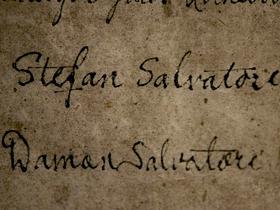 Stefan Salvatore
Damon Salvatore